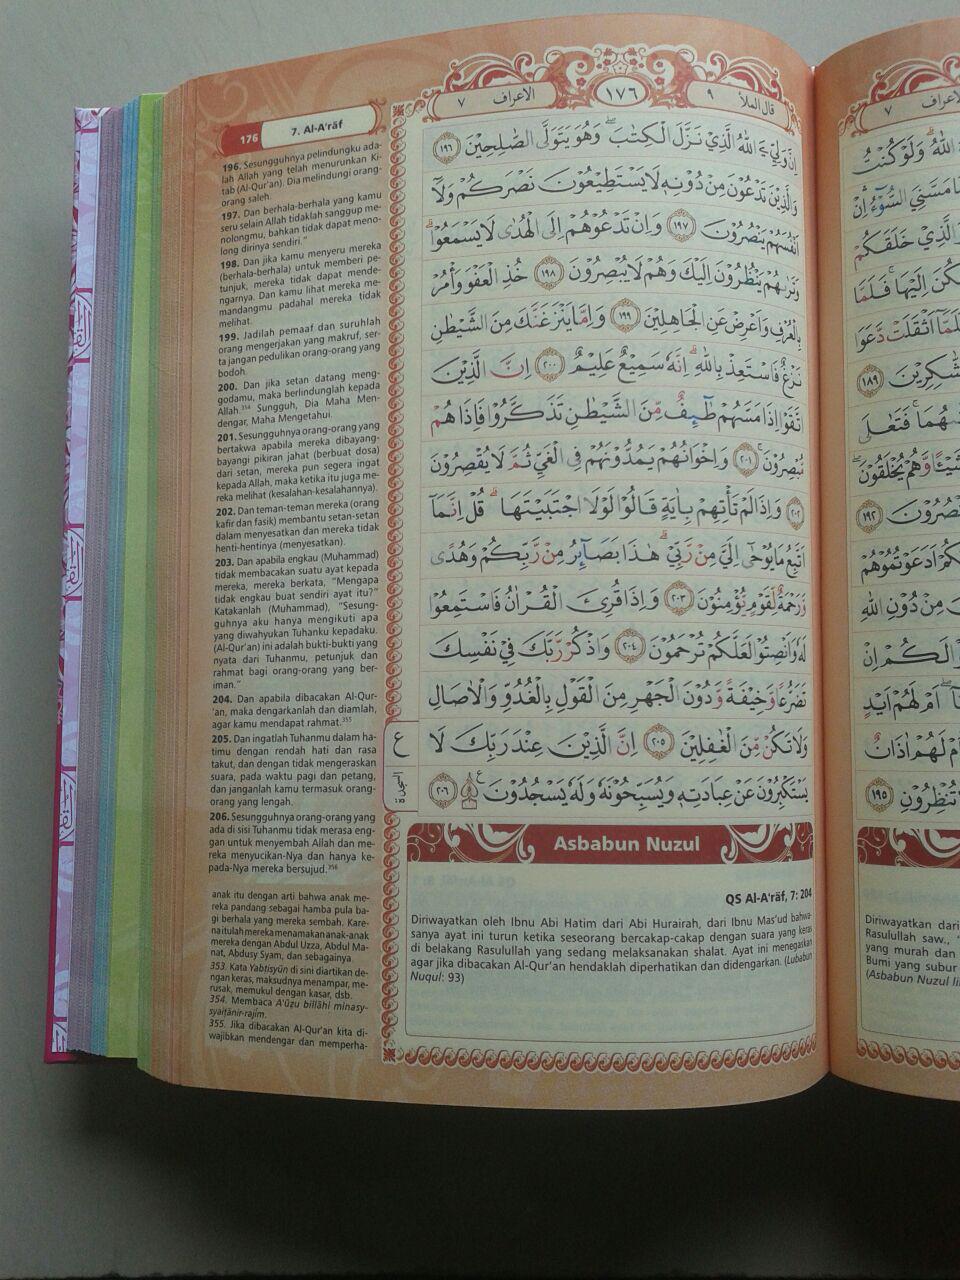 176 7. Al-A'rāf
196. Sesungguhnya pelindungku ada-
lah Allah yang telah menurunkan Ki-
tab (Al-Qur'an). Dia melindungi orang-
orang saleh.
197. Dan berhala-berhala yang kamu
seru selain Allah tidaklah sanggup me-
nolongmu, bahkan tidak dapat meno-
long dirinya sendiri."
198. Dan jika kamu menyeru mereka
(berhala-berhala) untuk memberi pe-
tunjuk, mereka tidak dapat mende-
ngarnya. Dan kamu lihat mereka me-
mandangmu padahal mereka tidak
melihat.
199. Jadilah pemaaf dan suruhlah
orang mengerjakan yang makruf, ser-
ta jangan pedulikan orang-orang yang
bodoh.
200. Dan jika setan datang meng-
godamu, maka berlindunglah kepada
Allah.354 Sungguh, Dia Maha Men-
dengar, Maha Mengetahui.
201. Sesungguhnya orang-orang yang
bertakwa apabila mereka dibayang-
bayangi pikiran jahat (berbuat dosa)
dari setan, mereka pun segera ingat
kepada Allah, maka ketika itu juga me-
reka melihat (kesalahan-kesalahannya).
202. Dan teman-teman mereka (orang
kafir dan fasik) membantu setan-setan
dalam menyesatkan dan mereka tidak
henti-hentinya (menyesatkan).
203. Dan apabila engkau (Muhammad)
tidak membacakan suatu ayat kepada
mereka, mereka berkata, "Mengapa
tidak engkau buat sendiri ayat itu?"
Katakanlah (Muhammad), "Sesung-
guhnya aku hanya mengikuti apa
yang diwahyukan Tuhanku kepadaku.
(Al-Qur'an) ini adalah bukti-bukti yang
nyata dari Tuhanmu, petunjuk dan
rahmat bagi orang-orang yang ber-
iman."
204. Dan apabila dibacakan Al-Qur-
'an, maka dengarkanlah dan diamlah,
agar kamu mendapat rahmat.355
205. Dan ingatlah Tuhanmu dalam ha-
timu dengan rendah hati dan rasa
takut, dan dengan tidak mengeraskan
suara, pada waktu pagi dan petang,
dan janganlah kamu termasuk orang-
orang yang lengah.
206. Sesungguhnya orang-orang yang
ada di sisi Tuhanmu tidak merasa eng-
gan untuk menyembah Allah dan me-
reka menyucikan-Nya dan hanya ke-
pada-Nya mereka bersujud.356
anak itu dengan arti bahwa anak me-
reka pandang sebagai hamba pula ba-
gi berhala yang mereka sembah. Kare-
na itulah mereka menamakan anak-anak
mereka dengan Abdul Uzza, Abdul Ma-
nat, Abdusy Syam, dan sebagainya.
353. Kata Yabtisyūn di sini diartikan de-
ngan keras, maksudnya menampar, me-
rusak, memukul dengan kasar, dsb.
354. Membaca A'ūżu billāhi minasy-
syaiṭānir-rajīm.
355. Jika dibacakan Al-Qur'an kita di-
wajibkan mendengar dan memperha-
قال الملأ ٩ ١٧٦ الاعراف ٧
اِنَّ وَلِيِّ يَ اللّٰهُ الَّذِيْ نَزَّلَ الْكِتٰبَ ۖ وَهُوَ يَتَوَلَّى الصّٰلِحِيْنَ ١٩٦
وَالَّذِيْنَ تَدْعُوْنَ مِنْ دُوْنِهٖ لَا يَسْتَطِيْعُوْنَ نَصْرَكُمْ وَلَآ
اَنْفُسَهُمْ يَنْصُرُوْنَ ١٩٧ وَاِنْ تَدْعُوْهُمْ اِلَى الْهُدٰى لَا يَسْمَعُوْا ۗ
وَتَرٰىهُمْ يَنْظُرُوْنَ اِلَيْكَ وَهُمْ لَا يُبْصِرُوْنَ ١٩٨ خُذِ الْعَفْوَ وَأْمُرْ
بِالْعُرْفِ وَاَعْرِضْ عَنِ الْجَاهِلِيْنَ ١٩٩ وَاِمَّا يَنْزَغَنَّكَ مِنَ الشَّيْطٰنِ
نَزْغٌ فَاسْتَعِذْ بِاللّٰهِ ۗ اِنَّهٗ سَمِيْعٌ عَلِيْمٌ ٢٠٠ اِنَّ الَّذِيْنَ
اتَّقَوْا اِذَا مَسَّهُمْ طٰۤىِٕفٌ مِّنَ الشَّيْطٰنِ تَذَكَّرُوْا فَاِذَا هُمْ
مُّبْصِرُوْنَ ۚ ٢٠١ وَاِخْوَانُهُمْ يَمُدُّوْنَهُمْ فِى الْغَيِّ ثُمَّ لَا يُقْصِرُوْنَ
٢٠٢ وَاِذَا لَمْ تَأْتِهِمْ بِاٰيَةٍ قَالُوْا لَوْلَا اجْتَبَيْتَهَا ۗ قُلْ اِنَّمَآ
اَتَّبِعُ مَا يُوْحٰٓى اِلَيَّ مِنْ رَّبِّيْ ۗ هٰذَا بَصَاۤىِٕرُ مِنْ رَّبِّكُمْ وَهُدًى
وَّرَحْمَةٌ لِّقَوْمٍ يُّؤْمِنُوْنَ ٢٠٣ وَاِذَا قُرِئَ الْقُرْاٰنُ فَاسْتَمِعُوْا
لَهٗ وَاَنْصِتُوْا لَعَلَّكُمْ تُرْحَمُوْنَ ٢٠٤ وَاذْكُرْ رَّبَّكَ فِيْ نَفْسِكَ
تَضَرُّعًا وَّخِيْفَةً وَّدُوْنَ الْجَهْرِ مِنَ الْقَوْلِ بِالْغُدُوِّ وَالْاٰصَالِ
وَلَا تَكُنْ مِّنَ الْغٰفِلِيْنَ ٢٠٥ اِنَّ الَّذِيْنَ عِنْدَ رَبِّكَ لَا
يَسْتَكْبِرُوْنَ عَنْ عِبَادَتِهٖ وَيُسَبِّحُوْنَهٗ وَلَهٗ يَسْجُدُوْنَ ۩ ٢٠٦
ع
السجدة
Asbabun Nuzul
QS Al-A'rāf, 7: 204
Diriwayatkan oleh Ibnu Abi Hatim dari Abi Hurairah, dari Ibnu Mas'ud bahwa-
sanya ayat ini turun ketika seseorang bercakap-cakap dengan suara yang keras
di belakang Rasulullah yang sedang melaksanakan shalat. Ayat ini menegaskan
agar jika dibacakan Al-Qur'an hendaklah diperhatikan dan didengarkan. (Lubabun
Nuqul: 93)
الاعراف ٧
اللّٰهُ ۗ وَلَوْ كُنْتُ
مَسَّنِيَ السُّوْۤءُ اِنْ
الَّذِيْ خَلَقَكُمْ
اِلَيْهَا ۚ فَلَمَّا
اَثْقَلَتْ دَّعَوَا
١٨٩
فَتَعٰلَى
وَّهُمْ يُخْلَقُوْنَ ۖ
١٩٢
مِنْ دُوْنِ اللّٰهِ
لَكُمْ اِنْ
اَمْ لَهُمْ اَيْدٍ
لَهُمْ اٰذَانٌ
تُنْظِرُوْنِ ١٩٥
Diriwayatkan dari
Rasulullah saw., "
yang murah dan
Bumi yang subur
(Asbabun Nuzul li